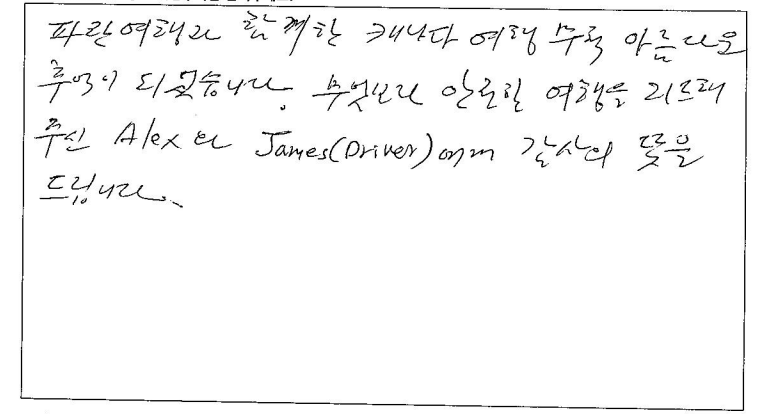 파란여행과 함께한 캐나다 여행 무척 아름다운
추억이 되었습니다. 무엇보다 안전한 여행을 리드해
주신 Alex와 James(Driver)에게 감사의 뜻을
드립니다.